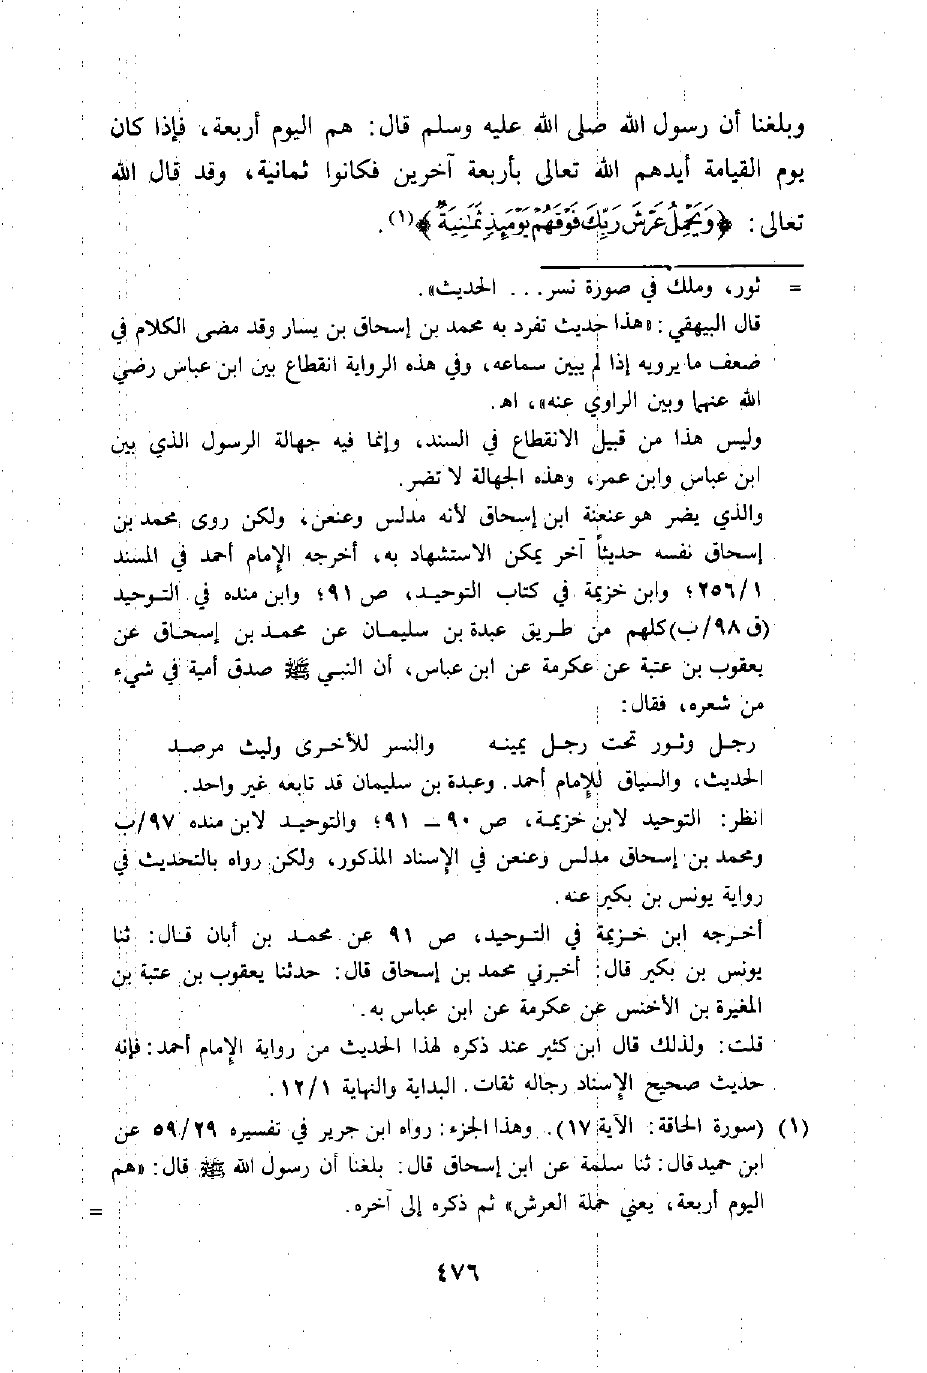 وبلغنا أن رسول الله صلى الله عليه وسلم قال: هم اليوم أربعة، فإذا كان
يوم القيامة أيدهم الله تعالى بأربعة آخرين فكانوا ثمانية، وقد قال الله
تعالى: ﴿وَيَحْمِلُ عَرْشَ رَبِّكَ فَوْقَهُمْ يَوْمَئِذٍ ثَمَٰنِيَةٌ﴾(١).
= ثور، وملك في صورة نسر... الحديث».
قال البيهقي: «هذا حديث تفرد به محمد بن إسحاق بن يسار وقد مضى الكلام في
ضعف ما يرويه إذا لم يبين سماعه، وفي هذه الرواية انقطاع بين ابن عباس رضي
الله عنهما وبين الراوي عنه»، اهـ.
وليس هذا من قبيل الانقطاع في السند، وإنما فيه جهالة الرسول الذي بين
ابن عباس وابن عمر، وهذه الجهالة لا تضر.
والذي يضر هو عنعنة ابن إسحاق لأنه مدلس وعنعن، ولكن روى محمد بن
إسحاق نفسه حديثاً آخر يمكن الاستشهاد به، أخرجه الإمام أحمد في المسند
٢٥٦/١؛ وابن خزيمة في كتاب التوحيد، ص ٩١؛ وابن منده في التوحيد
(ق ٩٨/ب) كلهم من طريق عبدة بن سليمان عن محمد بن إسحاق عن
يعقوب بن عتبة عن عكرمة عن ابن عباس، أن النبي ﷺ صدق أمية في شيء
من شعره، فقال:
رجل وثور تحت رجل يمينه    والنسر للأخرى وليث مرصد
الحديث، والسياق للإمام أحمد. وعبدة بن سليمان قد تابعه غير واحد.
انظر: التوحيد لابن خزيمة، ص ٩٠ – ٩١؛ والتوحيد لابن منده ٩٧/ب
ومحمد بن إسحاق مدلس وعنعن في الإسناد المذكور، ولكن رواه بالتحديث في
رواية يونس بن بكير عنه.
أخرجه ابن خزيمة في التوحيد، ص ٩١ عن محمد بن أبان قال: ثنا
يونس بن بكير قال: أخبرني محمد بن إسحاق قال: حدثنا يعقوب بن عتبة بن
المغيرة بن الأخنس عن عكرمة عن ابن عباس به.
قلت: ولذلك قال ابن كثير عند ذكره لهذا الحديث من رواية الإمام أحمد: فإنه
حديث صحيح الإسناد رجاله ثقات. البداية والنهاية ١٢/١.
(١) (سورة الحاقة: الآية ١٧). وهذا الجزء: رواه ابن جرير في تفسيره ٥٩/٢٩ عن
ابن حميد قال: ثنا سلمة عن ابن إسحاق قال: بلغنا أن رسول الله ﷺ قال: «هم
اليوم أربعة، يعني حملة العرش» ثم ذكره إلى آخره. =
٤٧٦